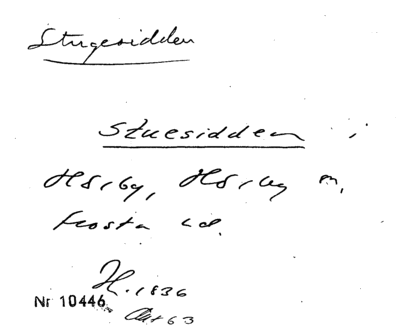 Stugesidden
Stuesidden ;
Hörby, Hörby m,
Frosta hd.
H. 1836
Nr 10446
Akt 63